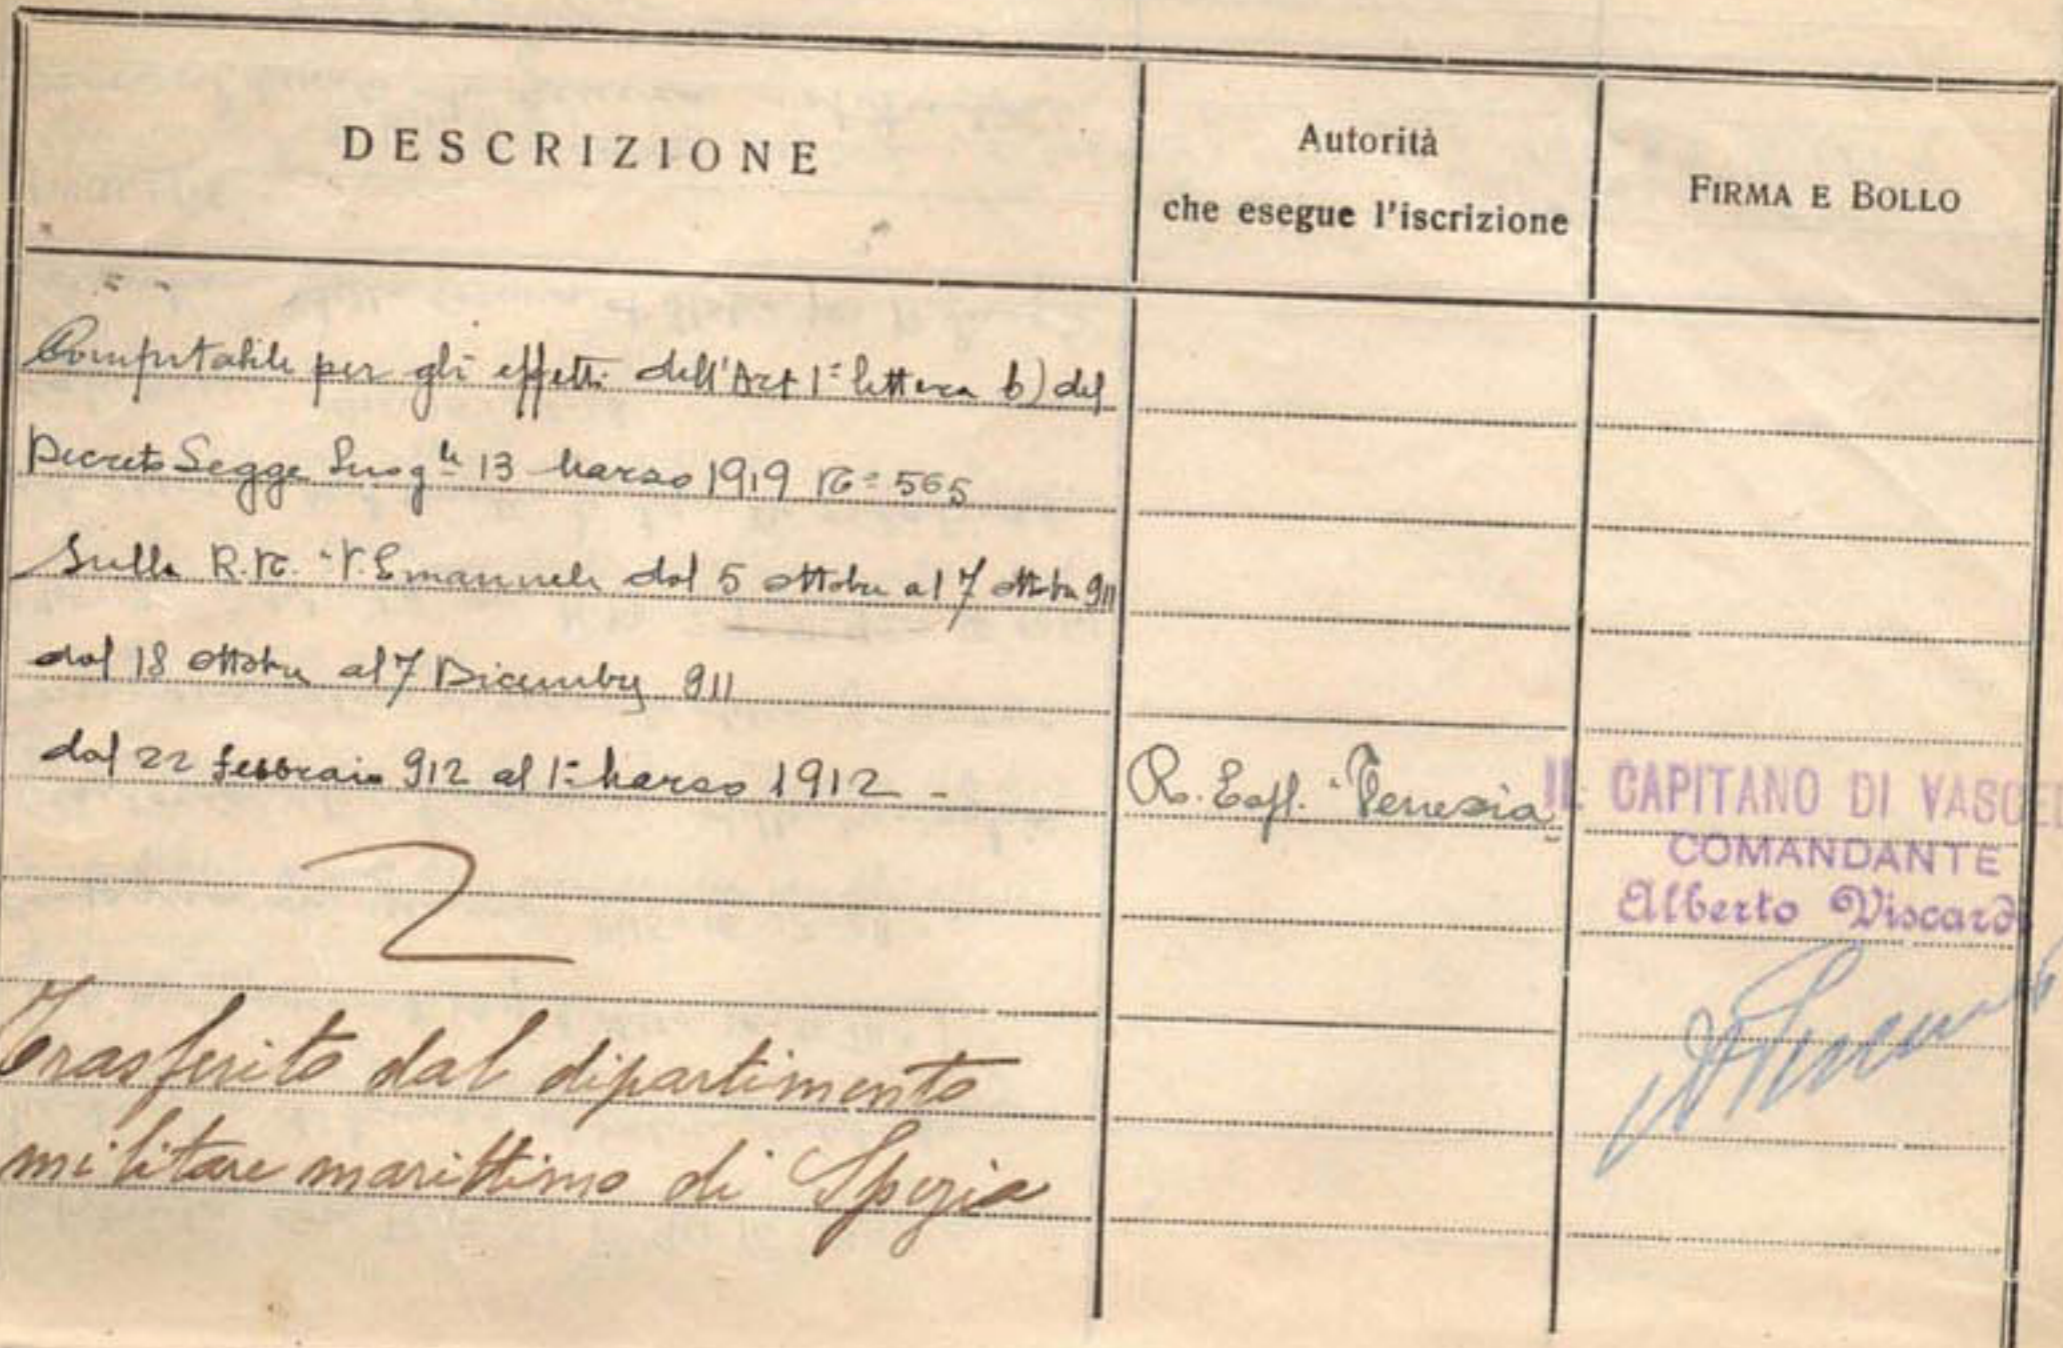 DESCRIZIONE
Autorità
che esegue l'iscrizione
FIRMA E BOLLO
Computabile per gli effetti dell'Art 1º lettera b) del
Decreto Legge Luogle 13 Marzo 1919 Nº 565
Sulla R.N. "V. Emanuele dal 5 ottobre al 7 ottobre 911
dal 18 ottobre al 7 Dicembre 911
dal 22 febbraio 912 al 1º Marzo 1912 -
R. Espl. "Venezia"
IL CAPITANO DI VASCEL
COMANDANTE
Alberto Viscardi
Trasferito dal dipartimento
militare marittimo di Spezia